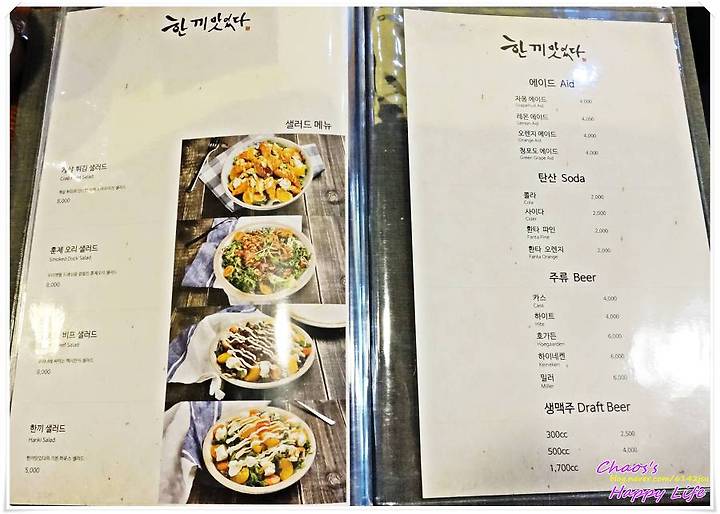 한끼맛있다
샐러드 메뉴
게살 튀김 샐러드
Salad
8,000
훈제 오리 샐러드
Smoked Duck Salad
8,000
비프 샐러드
Salad
8,000
한끼 샐러드
Hanki Salad
5,000
한끼맛있다
에이드 Aid
자몽 에이드 4,000
Grapefruit Aid
레몬 에이드 4,000
Lemon Aid
오렌지 에이드 4,000
Orange Aid
청포도 에이드 4,000
Green Grape Aid
탄산 Soda
콜라 2,000
Cola
사이다 2,000
Cider
환타 파인 2,000
Fanta Pine
환타 오렌지 2,000
Fanta Orange
주류 Beer
카스 4,000
Cass
하이트 4,000
Hite
호가든 6,000
Hoegaarden
하이네켄 6,000
Heineken
밀러 6,000
Miller
생맥주 Draft Beer
300cc 2,500
500cc 4,000
1,700cc
Chaos's
blog.naver.com/6142jsy
Happy Life